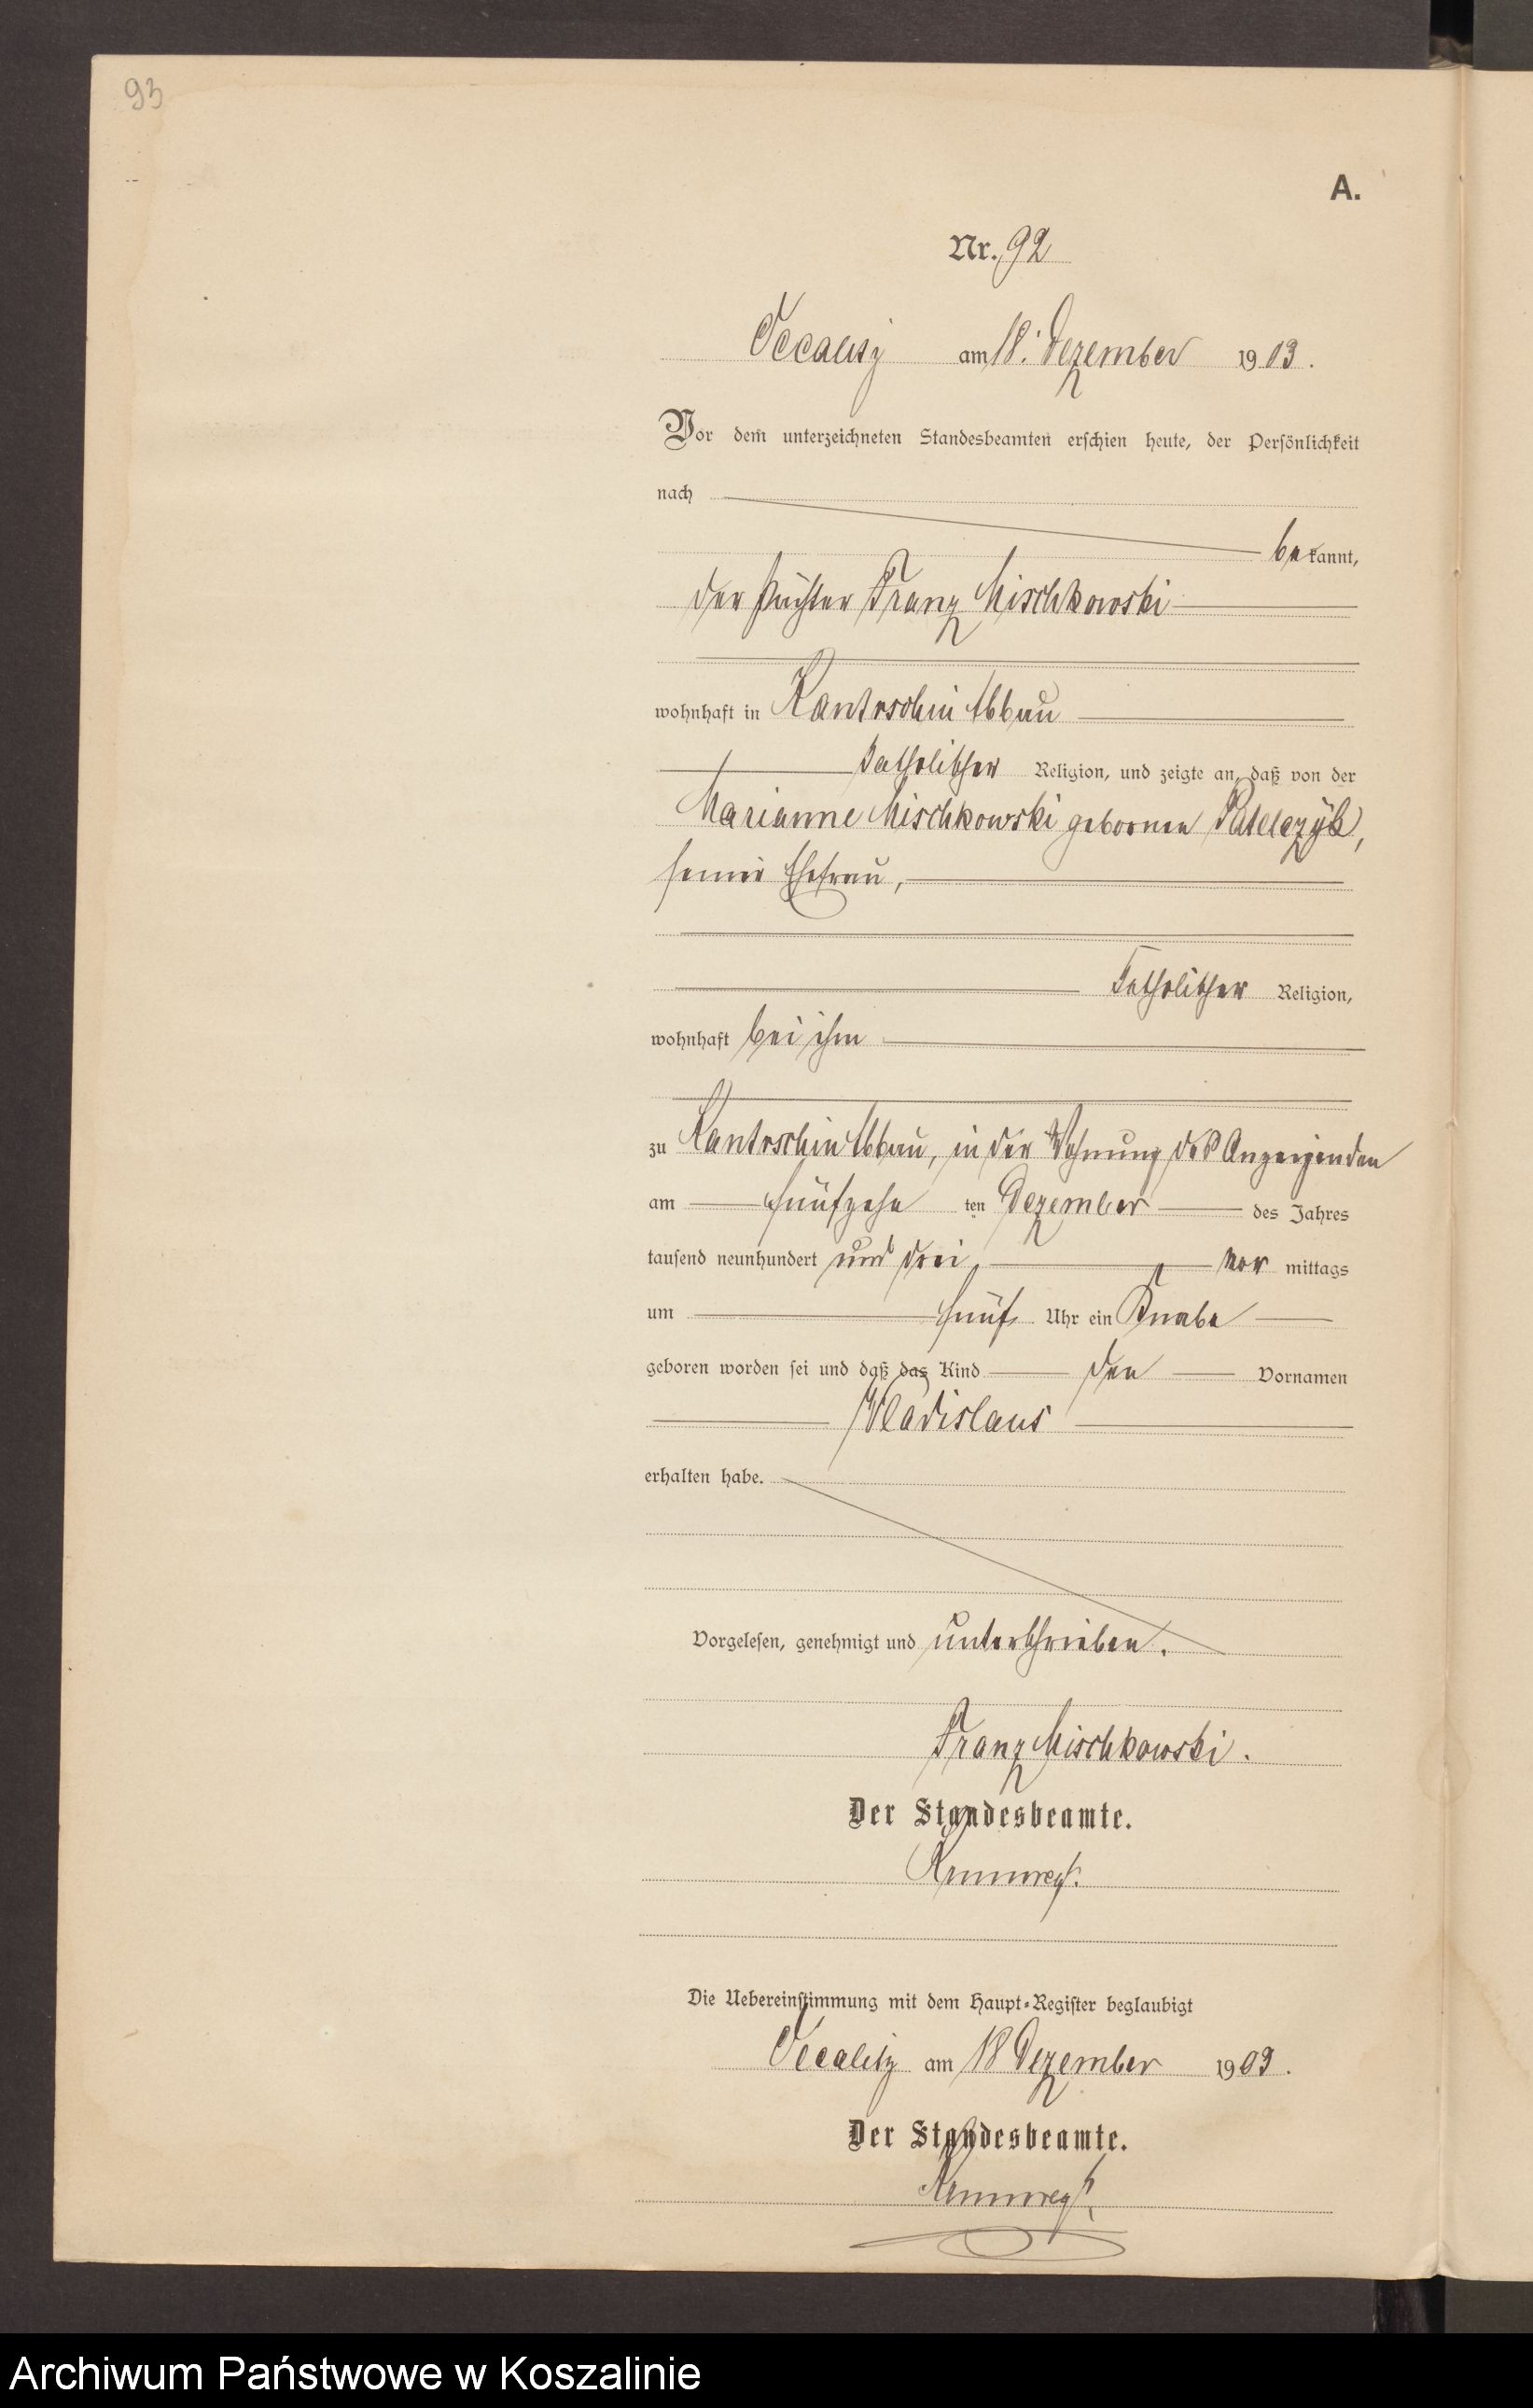 93
A.
Nr. 92
Occalitz am 18. Dezember 1903.
Vor dem unterzeichneten Standesbeamten erschien heute, der Persönlichkeit
nach
bekannt,
der Pächter Franz Mischkowski
wohnhaft in Kantrschin Abbau
katholischer Religion, und zeigte an, daß von der
Marianne Mischkowski gebornen Patelczyk,
seiner Ehefrau,
katholischer Religion,
wohnhaft bei ihm
zu Kantrschin Abbau, in der Wohnung des Anzeigenden
am fünfzehn ten Dezember des Jahres
tausend neunhundert und drei, vor mittags
um fünf Uhr ein Knabe
geboren worden sei und daß das Kind den Vornamen
Wladislaus
erhalten habe.
Vorgelesen, genehmigt und unterschrieben.
Franz Mischkowski.
Der Standesbeamte.
Die Uebereinstimmung mit dem Haupt-Register beglaubigt
Occalitz am 18 Dezember 1903.
Der Standesbeamte.
Archiwum Państwowe w Koszalinie